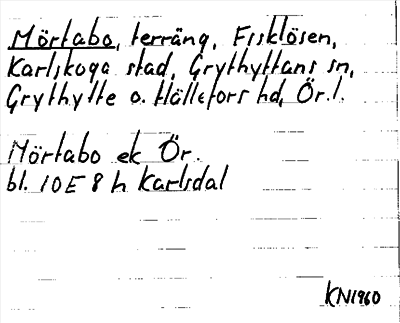 Mörtabo, terräng, Fisklösen,
Karlskoga stad, Grythyttans sn,
Grythytte o. Hällefors hd, Ör.l.
Mörtabo ek Ör.
bl. 10E 8 h Karlsdal
KN1960